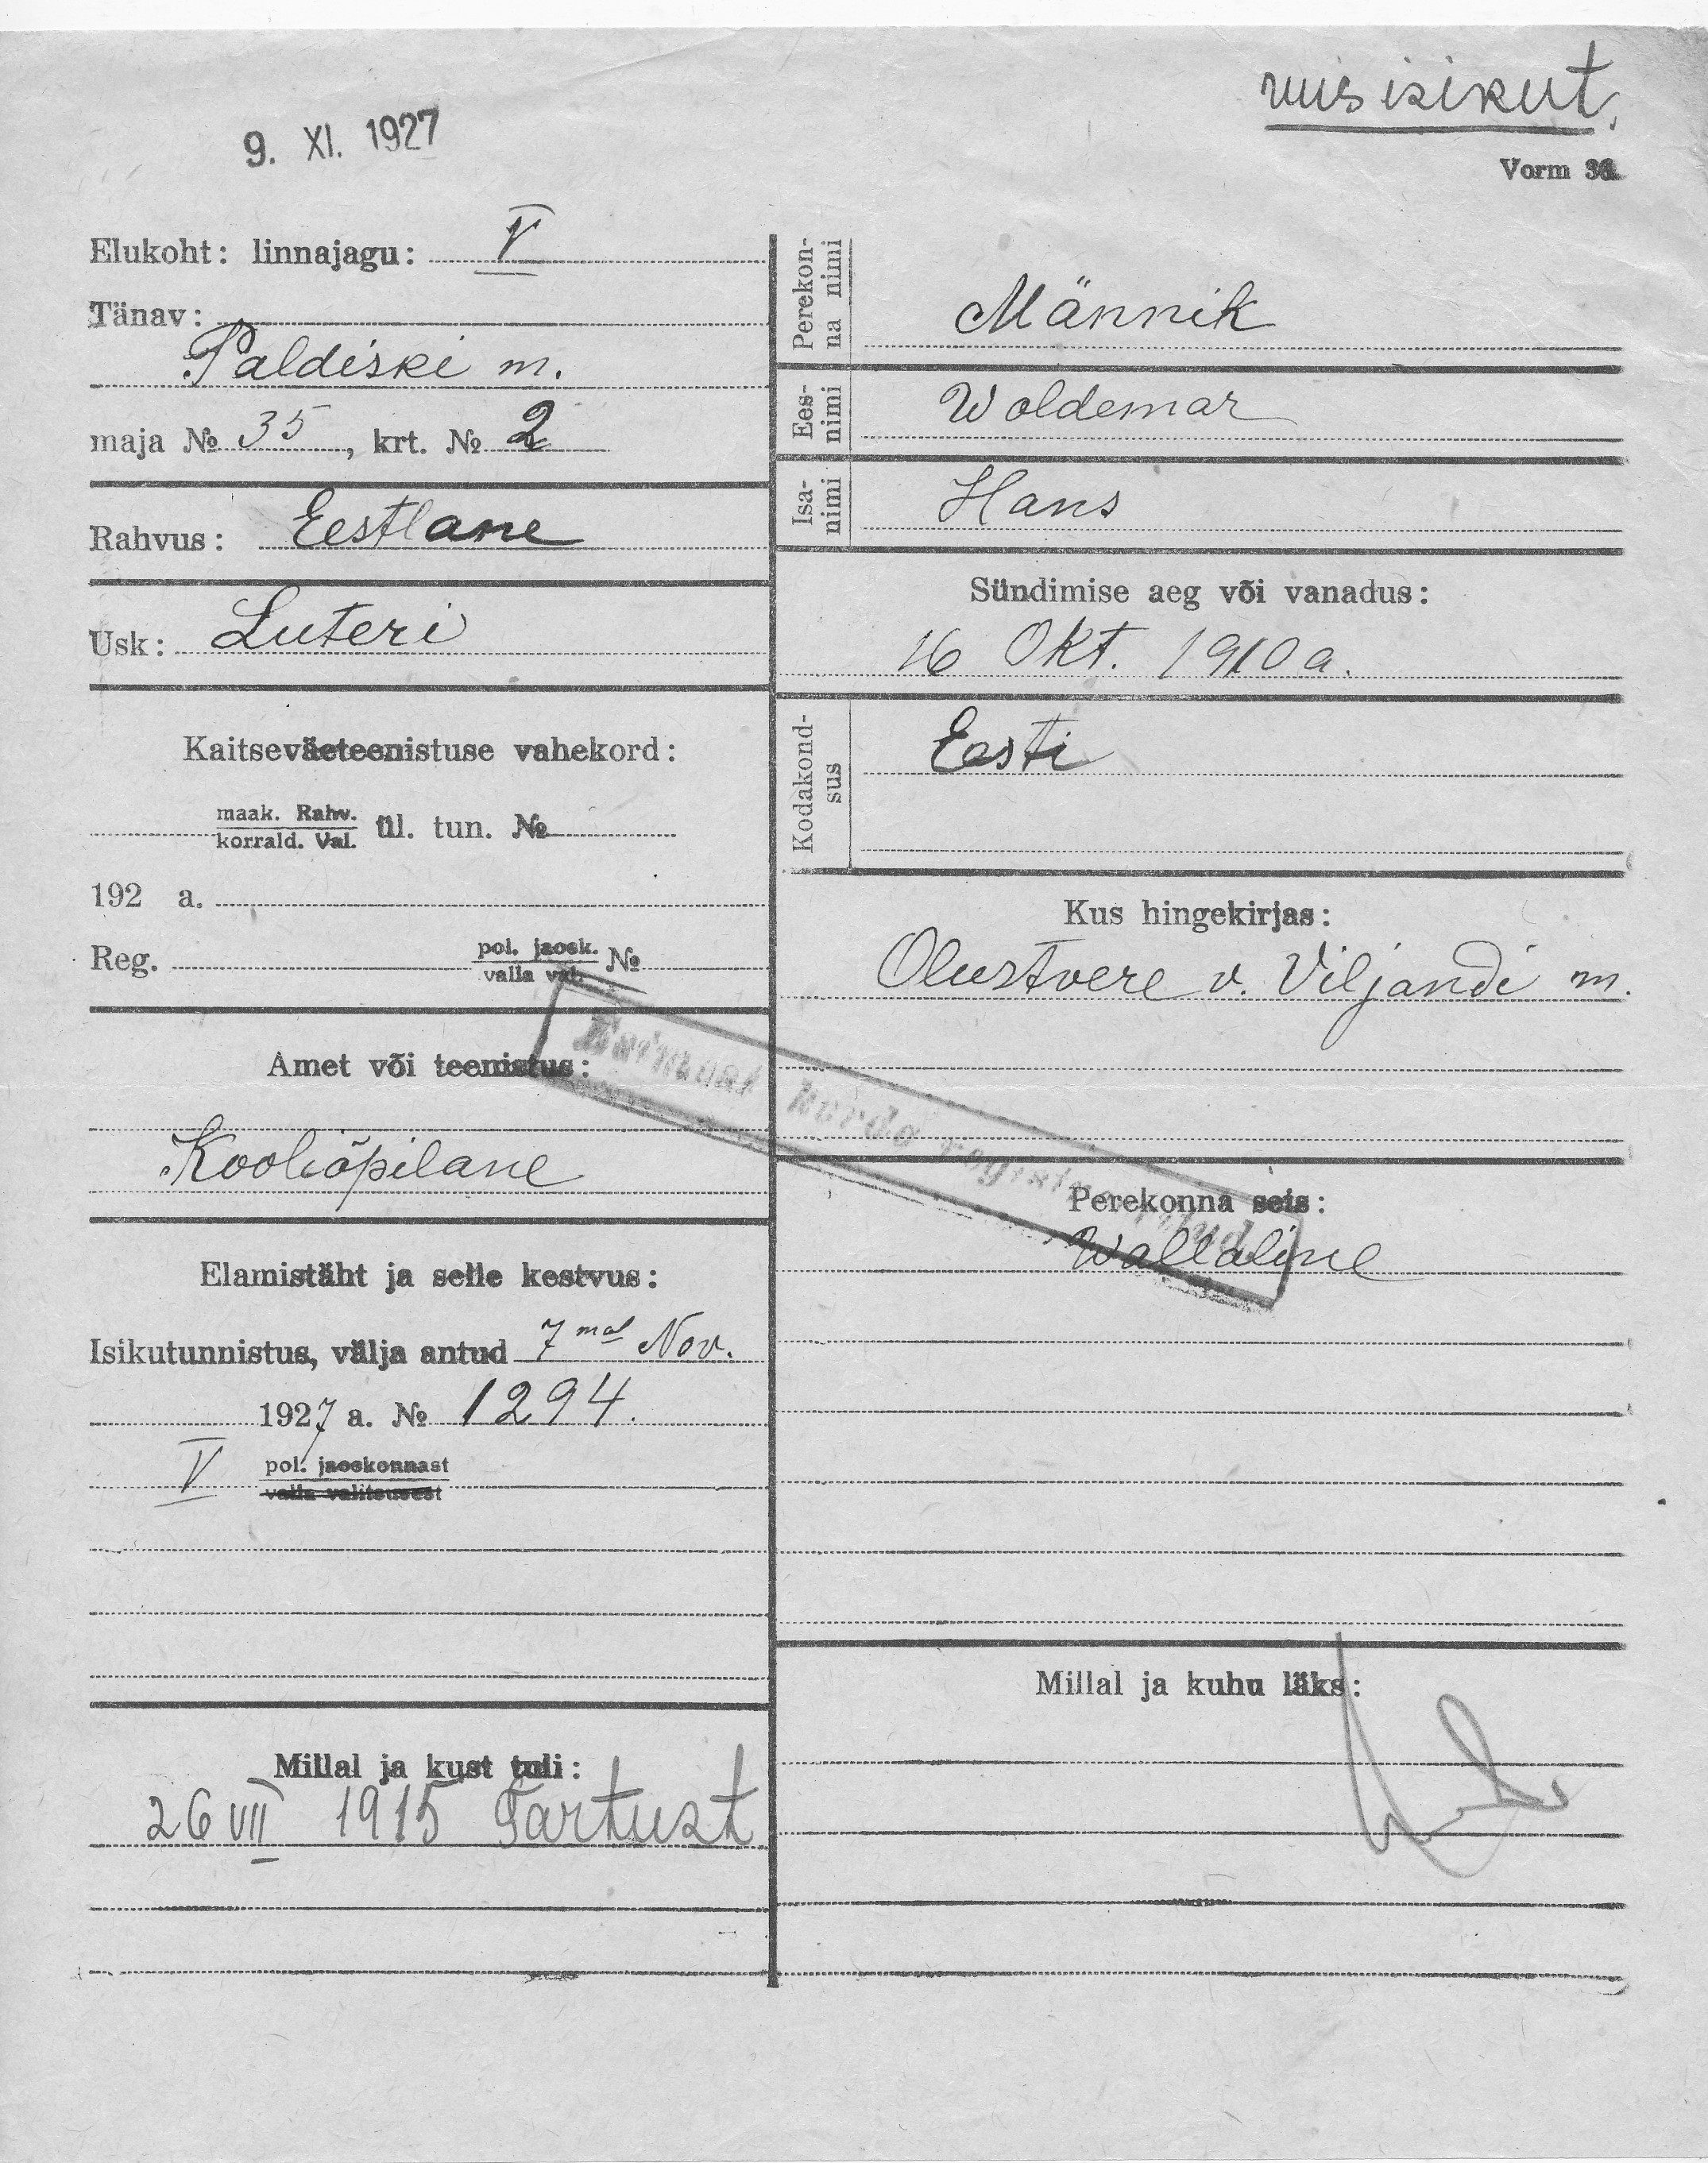 uus isikut.
9. XI. 1927
Vorm
Elukoht: linnajagu: V
Tänav:
Paldiski m.
maja № 35, krt. № 2
Rahvus: Eestlane
Usk: Luteri
Kaitseväeteenistuse vahekord:
maak. Rahv.
korrald. Val. ül. tun. №
192 a.
Reg. pol. jaosk. №
valla val.
Amet või teenistus:
Kooliõpilane
Elamistäht ja selle kestvus:
Isikutunnistus, välja antud 7 mal Nov.
1927 a. № 1294.
V pol. jaoskonnast
valla valitsusest
Millal ja kust tuli:
26 VII 1915 Tartust
Perekon-
na nimi
Männik
Ees-
nimi
Woldemar
Isa-
nimi
Hans
Sündimise aeg või vanadus:
16 Okt. 1910 a.
Kodakond-
sus
Eesti
Kus hingekirjas:
Olustvere v. Viljandi m.
Esimest korda registreeritud
Perekonna seis:
Wallaline
Millal ja kuhu läks: